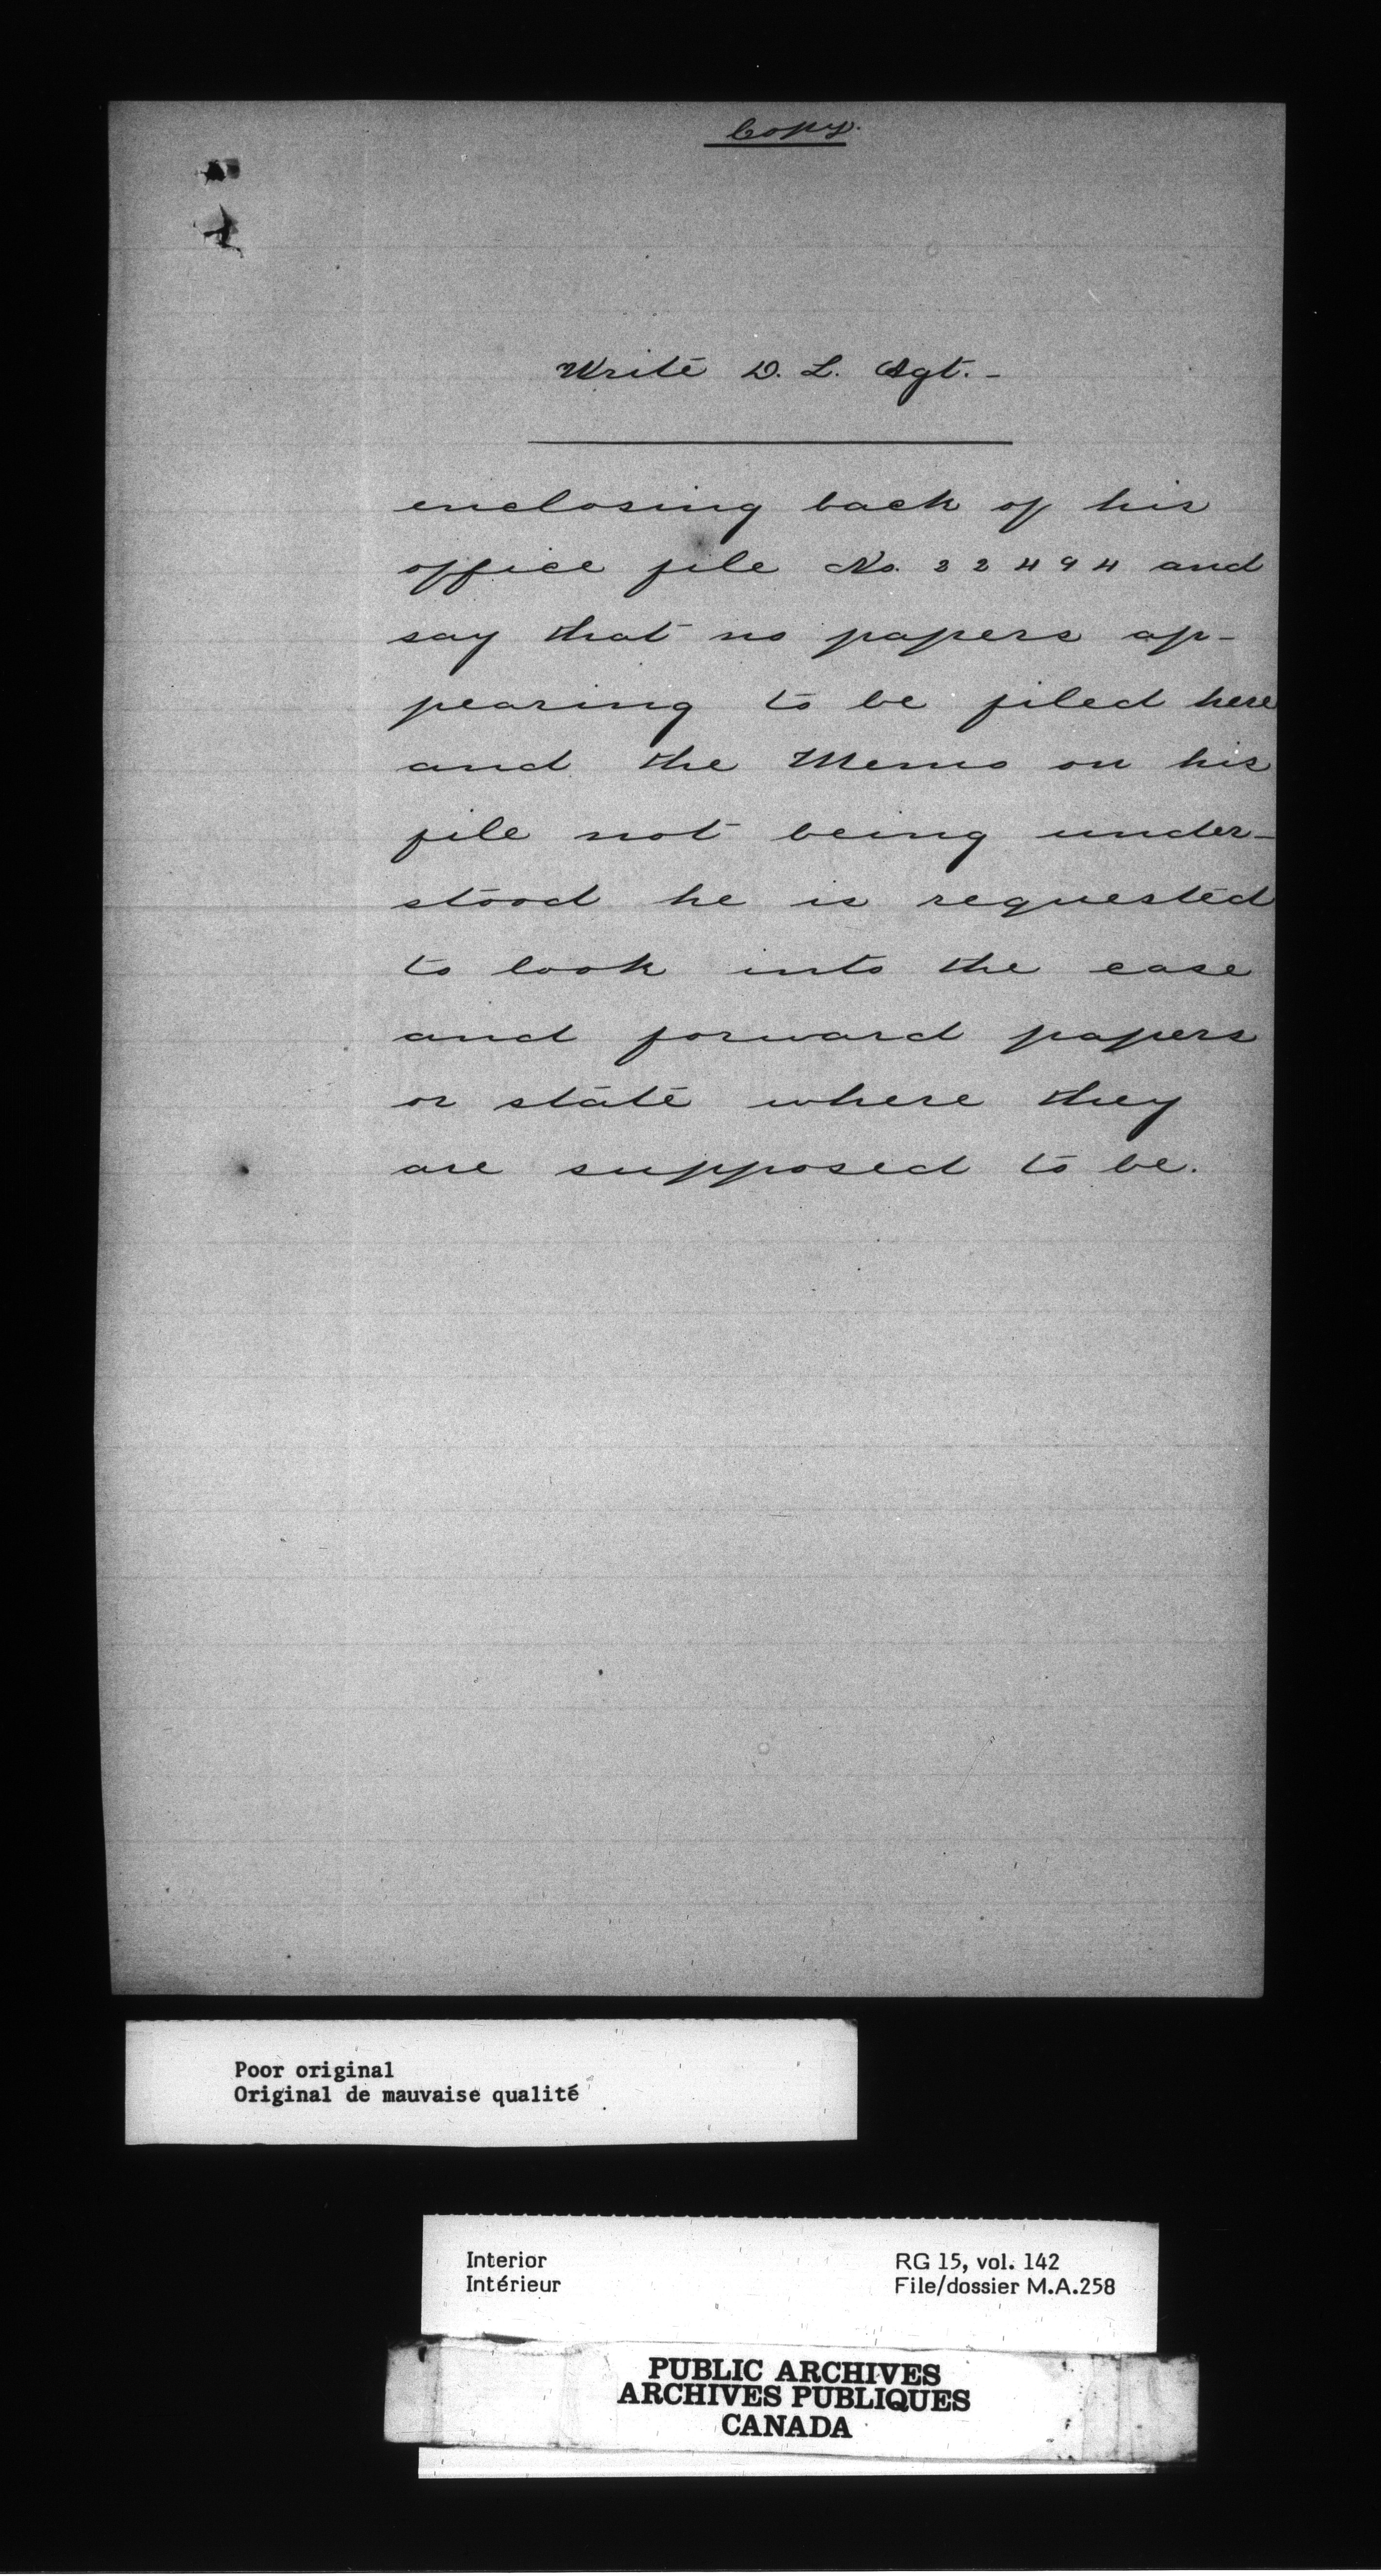 Copy.
Write D. L. Agt. -
enclosing back of his
office file No. 22494 and
say that no papers ap-
pearing to be filed here
and the Memo on his
file not being under-
stood he is requested
to look into the case
and forward papers
or state where they
are supposed to be.
Poor original
Original de mauvaise qualité
Interior RG 15, vol. 142
Intérieur File/dossier M.A.258
PUBLIC ARCHIVES
ARCHIVES PUBLIQUES
CANADA